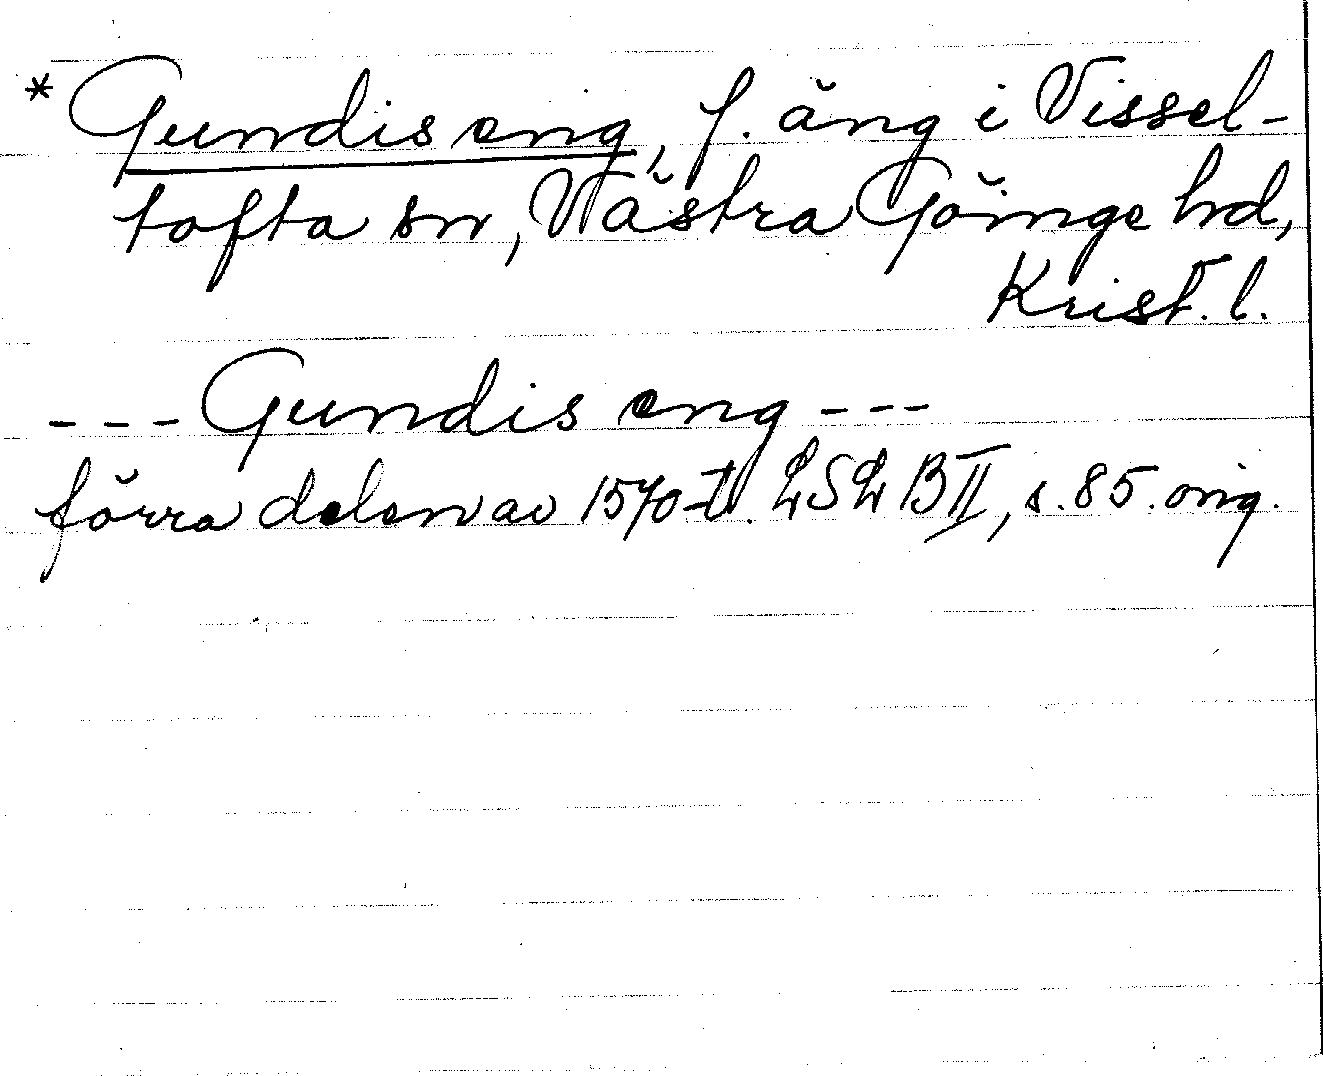 * Gundis eng, f. äng i Vissel-
tofta sn, Västra Göinge hd,
Krist. l.
- - - Gundis eng - - -
förra delen av 1570-t. LSL B II, s. 85. orig.